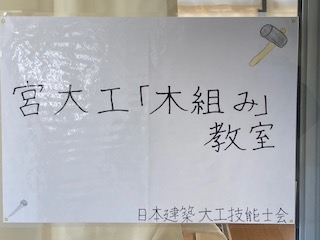 宮大工「木組み」
教室
日本建築大工技能士会